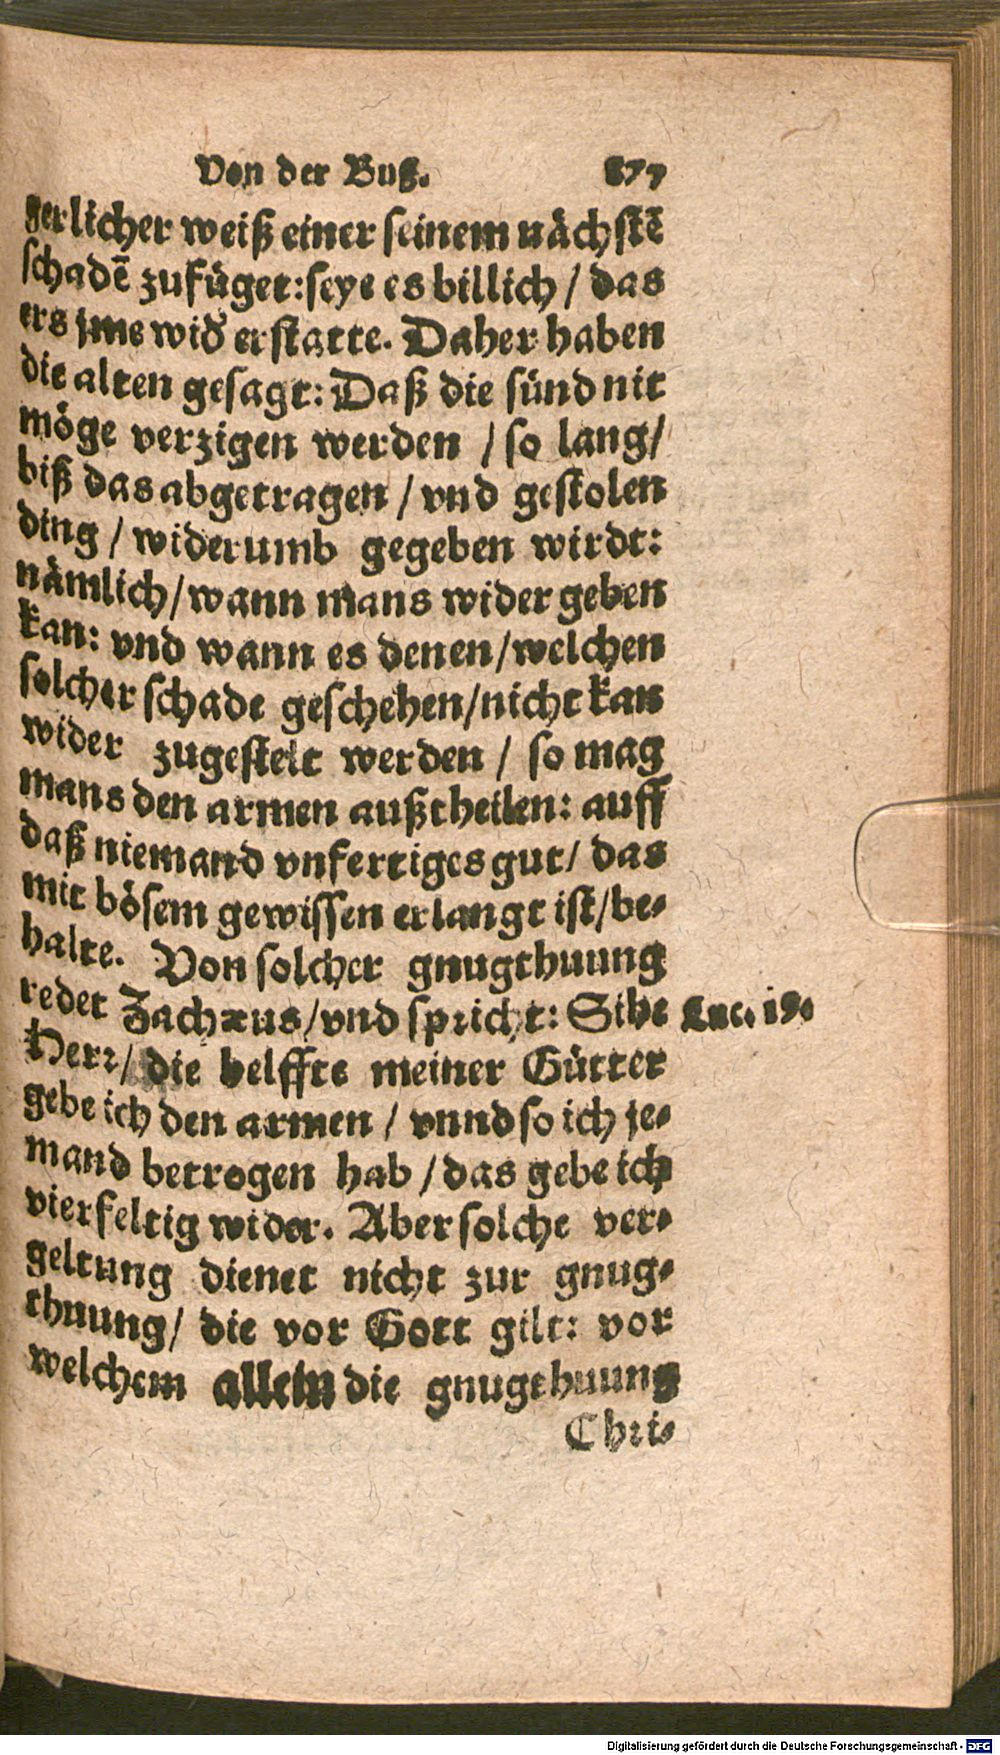 Von der Buß. 877
gerlicher weiß einer seinem nächstẽ
schadẽ zufüget: seye es billich / das
ers jme wid' erstatte. Daher haben
die alten gesagt: Daß die sünd nit
möge verzigen werden / so lang /
biß das abgetragen / vnd gestolen
ding / widerumb gegeben wirdt:
nämlich / wann mans wider geben
kan: vnd wann es denen / welchen
solcher schade geschehen / nicht kan
wider zugestelt werden / so mag
mans den armen außtheilen: auff
daß niemand vnfertiges gut / das
mit bösem gewissen erlangt ist / be-
halte. Von solcher gnugthuung
redet Zachæus / vnd spricht: Sihe
Luc. 19.
Herr / die helffte meiner Gütter
gebe ich den armen / vnnd so ich je-
mand betrogen hab / das gebe ich
vierfeltig wider. Aber solche ver-
geltung dienet nicht zur gnug-
thuung / die vor Gott gilt: vor
welchem allein die gnugthuung
Chri-
Digitalisierung gefördert durch die Deutsche Forschungsgemeinschaft - DFG